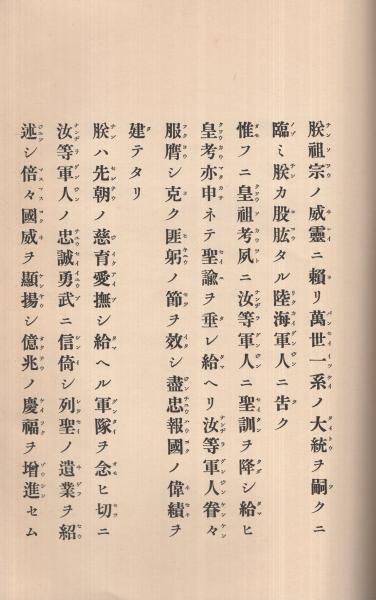 朕祖宗ノ威靈ニ賴リ萬世一系ノ大統ヲ嗣クニ
臨ミ朕カ股肱タル陸海軍人ニ告ク
惟フニ皇祖考夙ニ汝等軍人ニ聖訓ヲ降シ給ヒ
皇考亦申ネテ聖諭ヲ垂レ給ヘリ汝等軍人眷々
服膺シ克ク匪躬ノ節ヲ效シ盡忠報國ノ偉績ヲ
建テタリ
朕ハ先朝ノ慈育愛撫シ給ヘル軍隊ヲ念ヒ切ニ
汝等軍人ノ忠誠勇武ニ信倚シ列聖ノ遺業ヲ紹
述シ倍々國威ヲ顯揚シ億兆ノ慶福ヲ增進セム